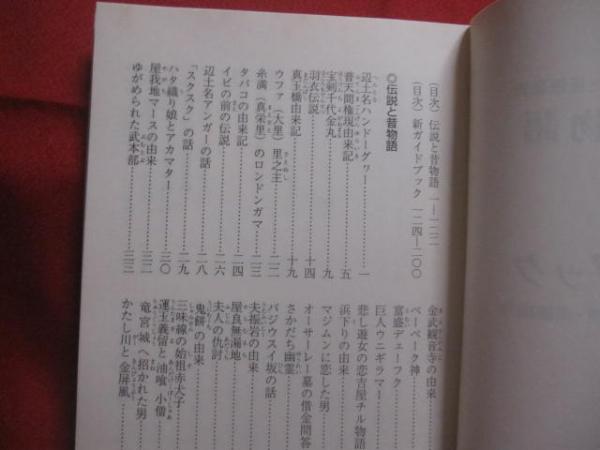 (目次) 伝説と昔物語 一―一二二
(目次) 新ガイドブック 一二四―二〇〇
◎伝説と昔物語
辺土名ハンドーグヮー……一
普天間権現由来記……五
宝剣千代金丸……九
羽衣伝説……十四
真玉橋由来記……十九
ウファ(大里)里之主……二二
糸満(真栄里)のロンドンガマ……二三
タバコの由来記……二四
イビの前の伝説……二六
辺土名アンガーの話……二八
「スクスク」の話……二九
ハタ織り娘とアカマター……三〇
屋我地マースの由来……三二
ゆがめられた武本部……三三
金武観音寺の由来
ベーベーク神
富盛デェーフク
巨人ウニギラマー
悲し遊女の恋吉屋チル物語
浜下りの由来
マジムンに恋した男
オーサーレー墓の借金問答
さかだち幽霊
バジウスイ坂の話
夫振岩の由来
屋良無漏地
夫人の仇討
鬼餅の由来
三味線の始祖赤犬子
運玉義留と油喰小僧
竜宮城へ招かれた男
かたし川と金屏風